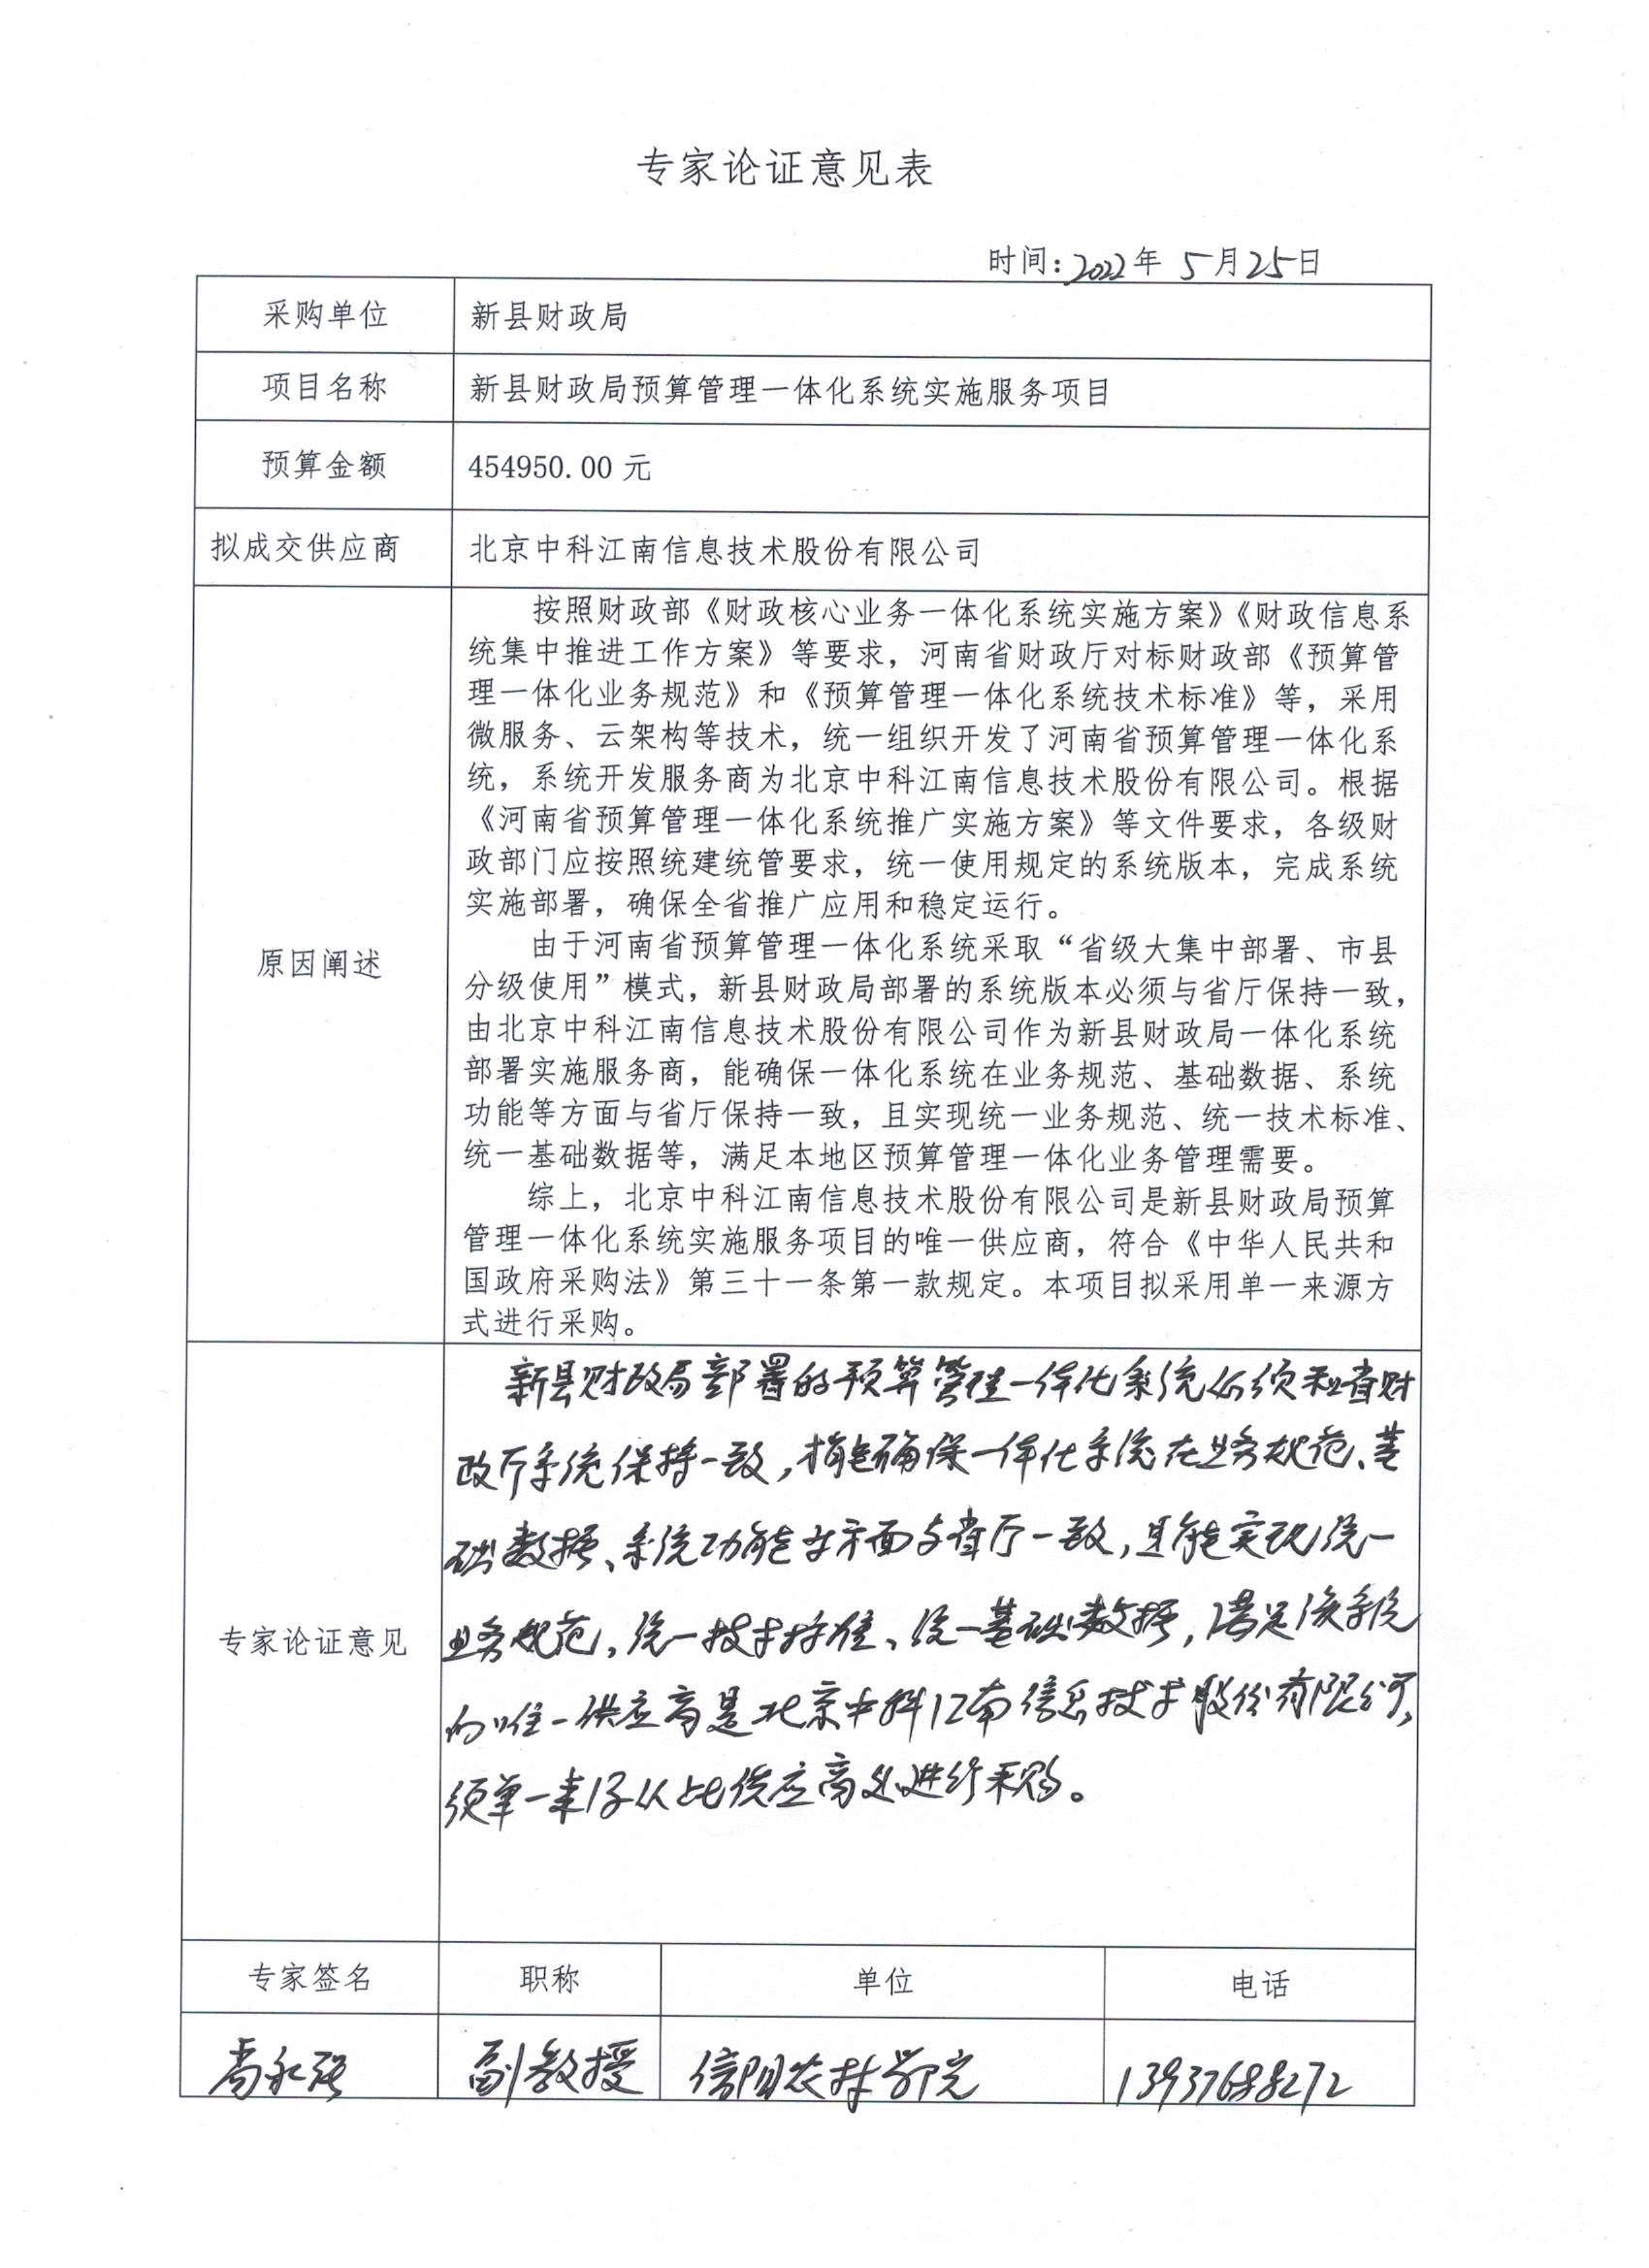 专家论证意见表
时间：2022年 5月25日
采购单位
新县财政局
项目名称
新县财政局预算管理一体化系统实施服务项目
预算金额
454950.00 元
拟成交供应商
北京中科江南信息技术股份有限公司
原因阐述
按照财政部《财政核心业务一体化系统实施方案》《财政信息系
统集中推进工作方案》等要求，河南省财政厅对标财政部《预算管
理一体化业务规范》和《预算管理一体化系统技术标准》等，采用
微服务、云架构等技术，统一组织开发了河南省预算管理一体化系
统，系统开发服务商为北京中科江南信息技术股份有限公司。根据
《河南省预算管理一体化系统推广实施方案》等文件要求，各级财
政部门应按照统建统管要求，统一使用规定的系统版本，完成系统
实施部署，确保全省推广应用和稳定运行。
由于河南省预算管理一体化系统采取“省级大集中部署、市县
分级使用”模式，新县财政局部署的系统版本必须与省厅保持一致，
由北京中科江南信息技术股份有限公司作为新县财政局一体化系统
部署实施服务商，能确保一体化系统在业务规范、基础数据、系统
功能等方面与省厅保持一致，且实现统一业务规范、统一技术标准、
统一基础数据等，满足本地区预算管理一体化业务管理需要。
综上，北京中科江南信息技术股份有限公司是新县财政局预算
管理一体化系统实施服务项目的唯一供应商，符合《中华人民共和
国政府采购法》第三十一条第一款规定。本项目拟采用单一来源方
式进行采购。
专家论证意见
新县财政局部署的预算管理一体化系统必须和省财
政厅系统保持一致，才能确保一体化系统在业务规范、基
础数据、系统功能等方面与省厅一致，且能实现统一
业务规范，统一技术标准、统一基础数据，满足该系统
的唯一供应商是北京中科江南信息技术股份有限公司，
须单一来源从此供应商处进行采购。
专家签名
职称
单位
电话
副教授
信阳农林学院
13937688272